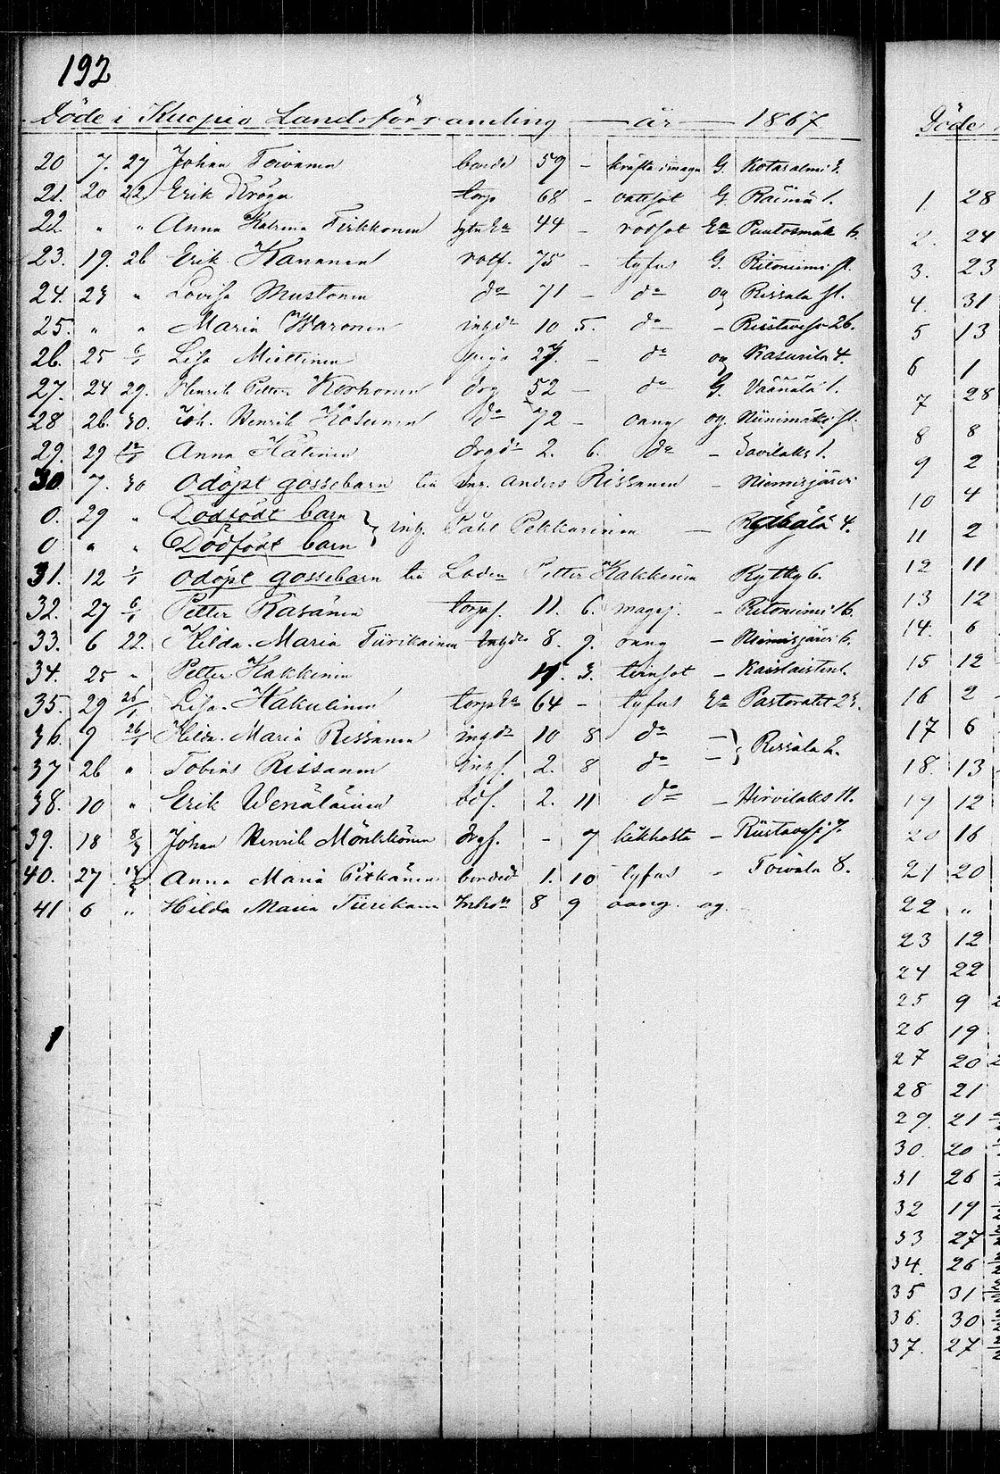 192
Döde i Kuopio Landsförsamling — år — 1867
20 7. 27 Johan Toivanen bonde 59 - kräfta i magn G. Kotasalmi 2.
21. 20 22 Erik Kröger torp 68 - vattsot G. Räimä 1.
22 " " Anna Katrina Tirkkonen 44 - rödsot Ea Puutosmäk 6.
23. 19. 26 Erik Kananen rotf. 75 - tyfus G. Ritoniemi fl.
24. 23 " Lovisa Mustonen do 71 - do og Rissala fl.
25. " " Maria Waronen ingdr 10 5. do - Riistavesi 26.
26. 25 6/1 Lisa Miettinen piga 27. - do og Kasurila 4.
27. 24 29. Henrik Petter Korhonen drg 52 - do G. Väänälä 1.
28 26. 30. Joh. Henrik Kosunen do 72 - oang og. Niinimäki fl.
29. 29 Anna Hälinen drgdr 2. 6. do - Savilaks 1.
30 7. 30 Odöpt gossebarn till Anders Rissanen - Niemisjärvi
0. 29 " Dödfödt barn
0 " " Dödfödt barn } inh. Påhl Pekkarinen - Rytkylä 4.
31. 12 1/1 Odöpt gossebarn till Loden Petter Kakkinen Rytky 6.
32. 27 6/1 Petter Räsänen torps. 11. 6. magsj. - Ritoniemi 16.
33. 6 22. Hilda Maria Tiirikainen Inhdr 8. 9. oang - Niemisjärvi 6.
34. 25 " Petter Kakkinen 3. tvinsot -
35. 29 26/1 Lisa Hakulinen torp Ea 64 - tyfus Ea Pastoratet 23.
36. 9 26/1 Hilda Maria Rissanen ingdr 10 8 do -
37 26 " Tobias Rissanen ings. 2. 8 do - } Rissala 2.
38. 10 " Erik Wenäläinen 2. 11 do - Hirvilaks 11.
39. 18 8/3 Johan Henrik Mönkkönen drgs. - 7 kikhosta - Riistavesi 7.
40. 27 14/3 Anna Maria Pitkänen bondedr 1. 10 tyfus - Toivala 8.
41 6 " Hilda Maria Tiirikain Inhdr 8 9 oang. og -
1
Döde
1 28
2. 24
3. 23
4. 31
5 13
6 1
7 28
8 8
9 2
10 4
11 2
12 11
13 12
14 6
15 12
16 2
17 6
18. 13
19 12
20 16
21 20
22 "
23 12
24 22
25 9
26 19
27 20
28 21
29. 21
30. 20
31 26
32 19
33 27
34. 26
35 31
36. 30
37. 27